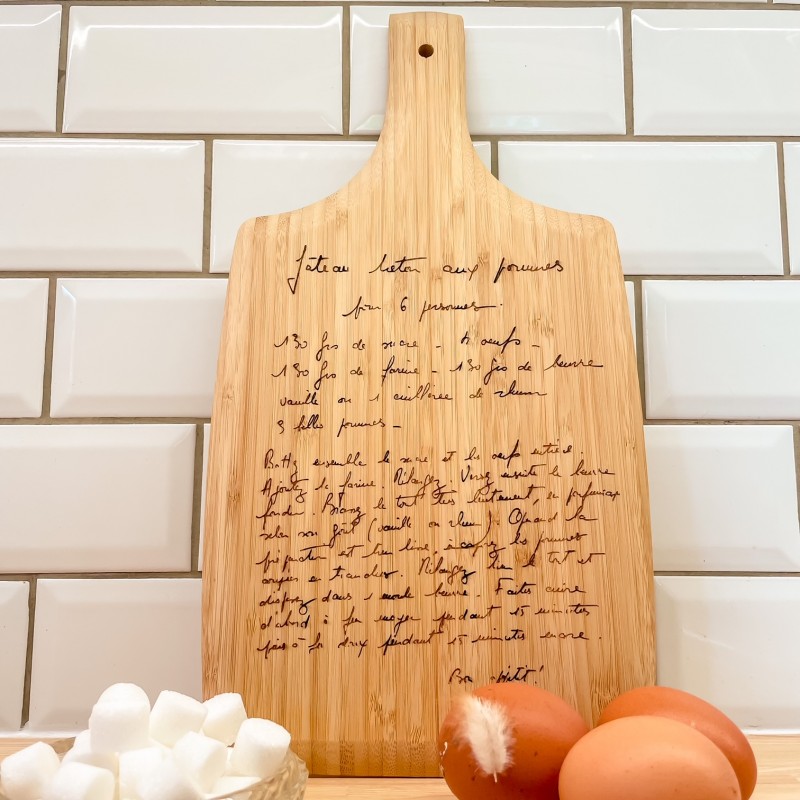 Gâteau breton aux pommes
pour 6 personnes.
130 grs de sucre - 4 oeufs -
180 grs de farine - 130 grs de beurre
vanille ou 1 cuillerée de rhum
3 belles pommes -
Battez ensemble le sucre et les oeufs entiers.
Ajoutez la farine. Mélangez. Versez ensuite le beurre
fondu. Brassez le tout très lentement, en parfumant
selon son goût (vanille ou rhum). Quand la
préparation est bien lisse, incorporez les pommes
coupées en tranches. Mélangez bien le tout et
disposez dans 1 moule beurré. Faites cuire
d'abord à feu moyen pendant 15 minutes
puis à feu doux pendant 15 minutes encore.
Bon appétit!